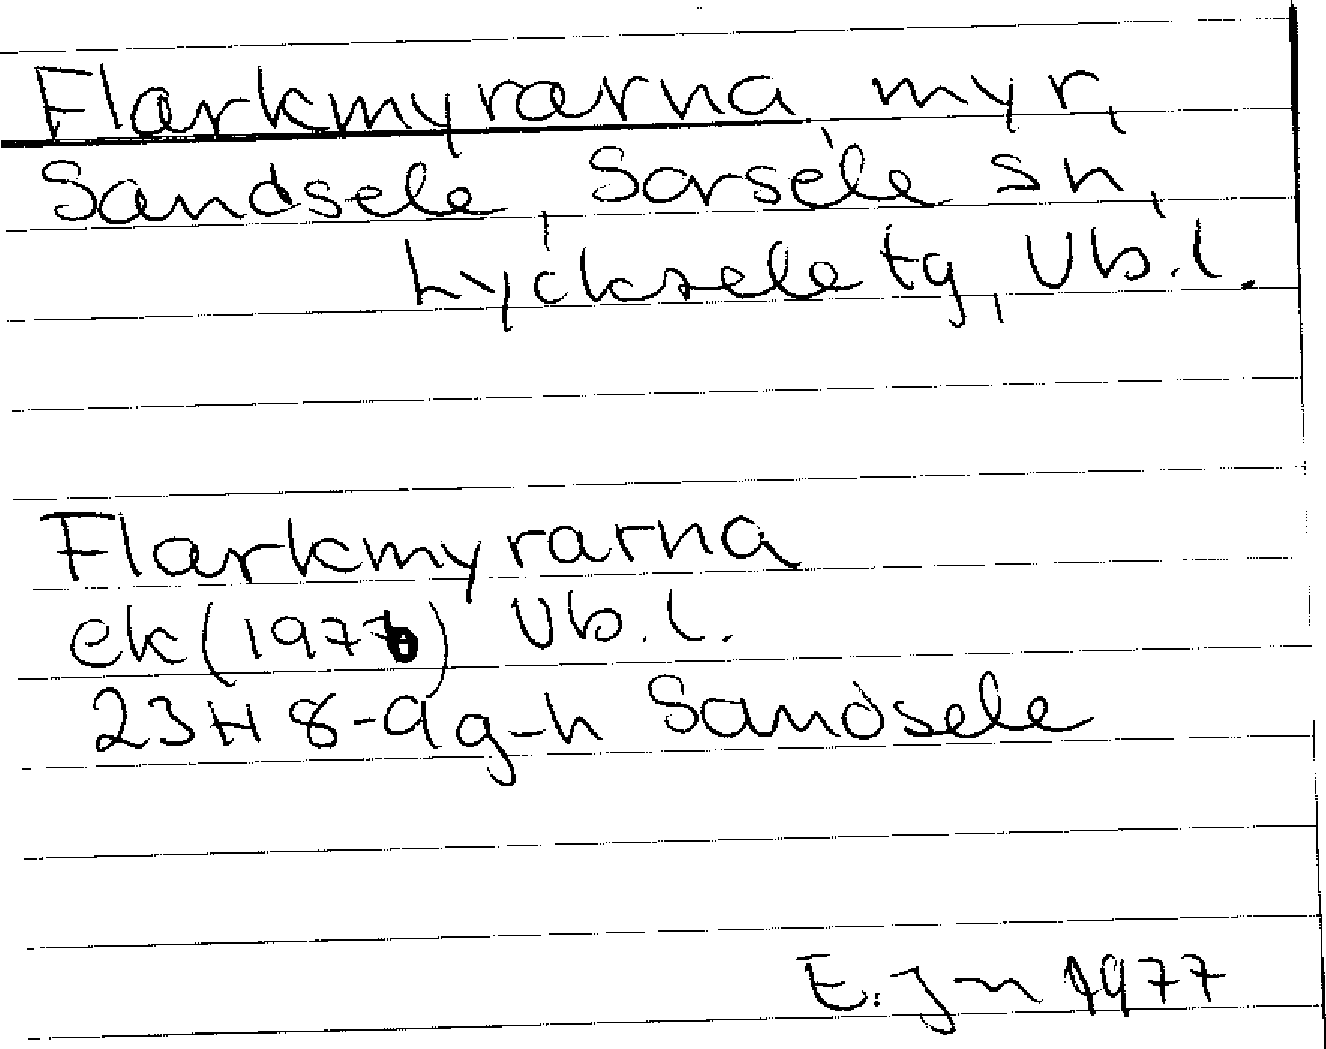 Flarkmyrarna myr,
Sandsele, Sorsele sn,
Lycksele tg, Vb.l.
Flarkmyrarna
ek (1976) Vb.l.
23H 8-9g-h Sandsele
E. Jn 1977